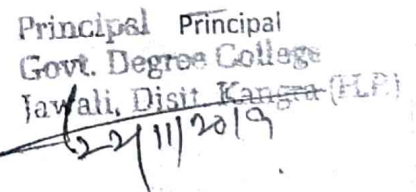 Principal Principal
Govt. Degree College
Jawali, Distt. Kangra (H.P.)
22/11/2019